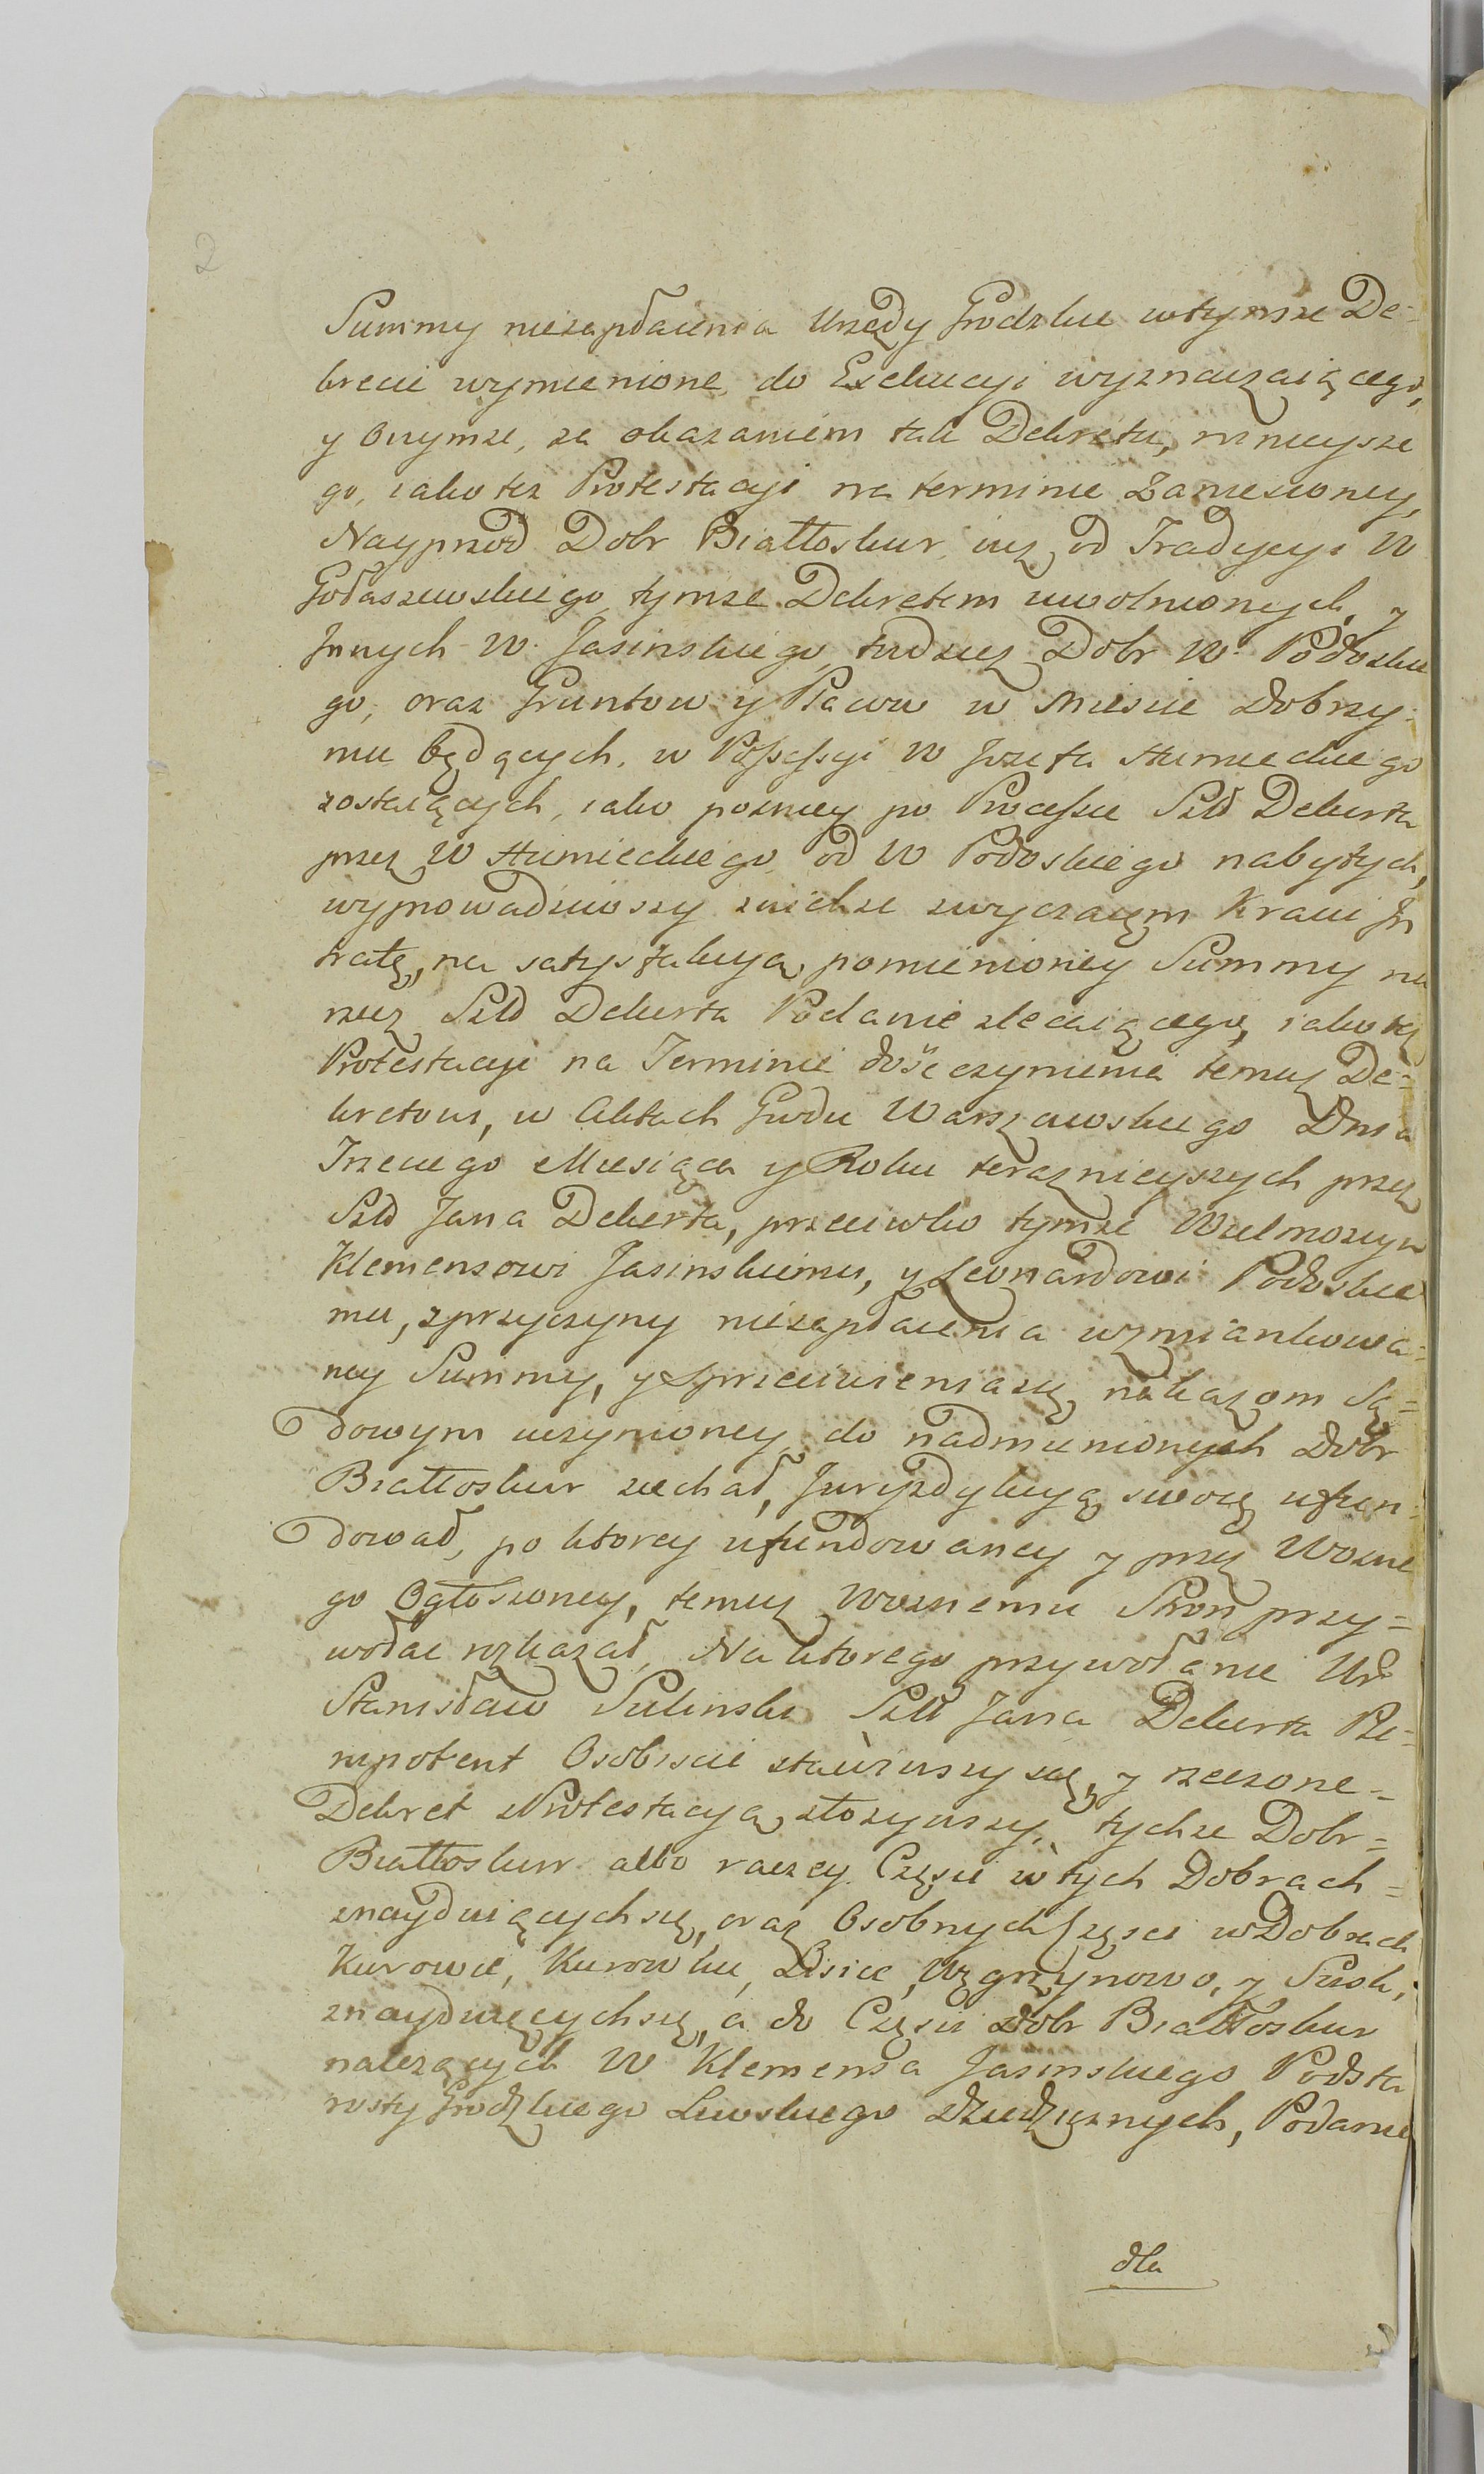 2
Summy niezapłacenia Urzędy Grodzkie wtymże De-
krecie wymienione do Exekucyi wyznaczaiącego,
y Onymże, za okazaniem tak Dekretu, ninieysze
go, iako tez Protestacyi na terminie Zaniesioney,
Nayprzod Dobr Białłoskur iuz od Tradycyi W
Gołaszewskiego tymze Dekretem uwolnionych, y
Innych W. Jasinskiego tudziez Dobr W. Podoskie
go, oraz Gruntow y Placow w Miescie Dobrzy-
niu będących, w Possessyi W Jozefa Humieckiego
zostaiących, iako pozniey po Processie Szld Dekerta
przez W Humieckiego od W Podoskiego nabytych,
wyprowadziwszy zwichże zwyczaiem Kraiu In
tratę, na satysfakcyą pomienioney Summy na
rzecz Szld Dekerta Podanie zlecaiącego, iako tez
Protestacyi na Terminie dosc czynienia temuz De-
kretowi, w Aktach Grodu Warszawskiego Dnia
Trzeciego Miesiąca y Roku teraznieyszych przez
Szld Jana Dekerta, przeciwko tymże Wielmoznym
Klemensowi Jasinskiemu, y Leonardowi Podoskie
mu, zprzyczyny niezapłacenia wzmiankowa-
ney Summy, y Sprzeciwieniasię nakazom Są-
dowym uczynioney do nadmienionych Dobr
Białłoskur ziechał, Juryzdykcyą swoię ufun-
dował, po ktorey ufundowaney y przez Wozne
go Ogłoszoney, temuz Woznemu Stron przy-
wołac rozkazał, Na ktorego przywołanie Ur
Stanisław Sulinski Szld Jana Dekerta Ple-
nipotent Osobiscie stawiwszy się, y rzeczone-
Dekret zProtestacyą złozywszy, tychże Dobr-
Białłoskur albo raczey Częsci w tych Dobrach-
znayduiącychsię, oraz Osobnych Częsci wDobrach
Kurowie, Kurowku, Lisice, Węgrzynowo, y Suski,
znayduiącychsię, a do Częsci Dobr Białłoskur
nalezących W Klemensa Jasinskiego Podsta
rosty Grodzkiego Liwskiego Dziedzicznych, Podanie
dla